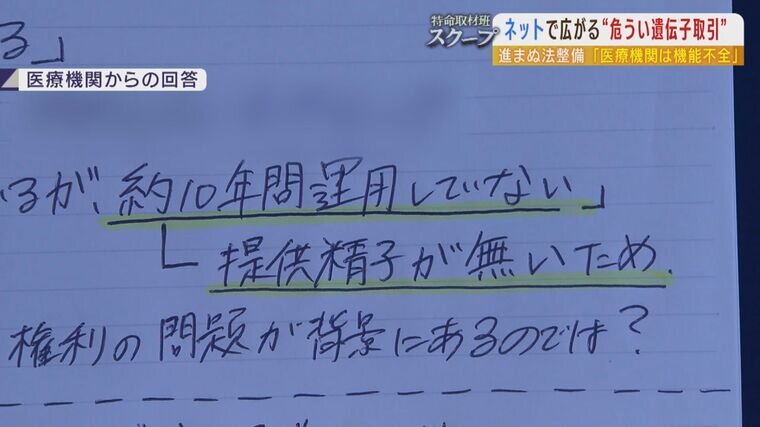 特命取材班
スクープ
ネットで広がる“危うい遺伝子取引”
進まぬ法整備「医療機関は機能不全」
る」
医療機関からの回答
いるが、約10年間運用していない」
提供精子が無いため.
権利の問題が背景にあるのでは?